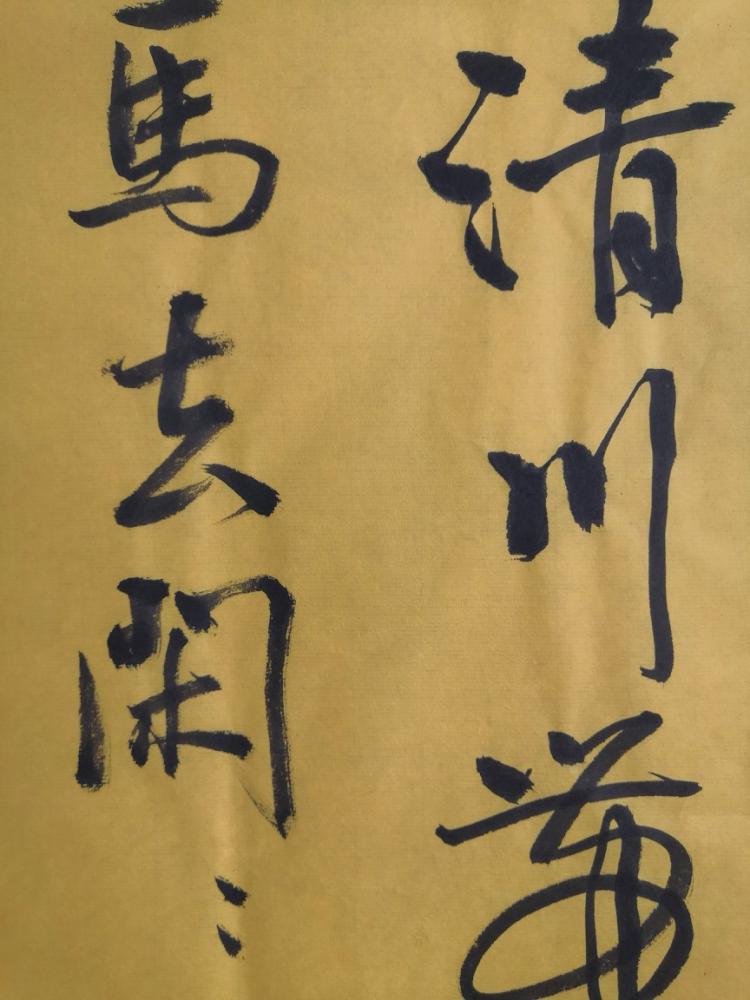 清川帶
馬去閑〻